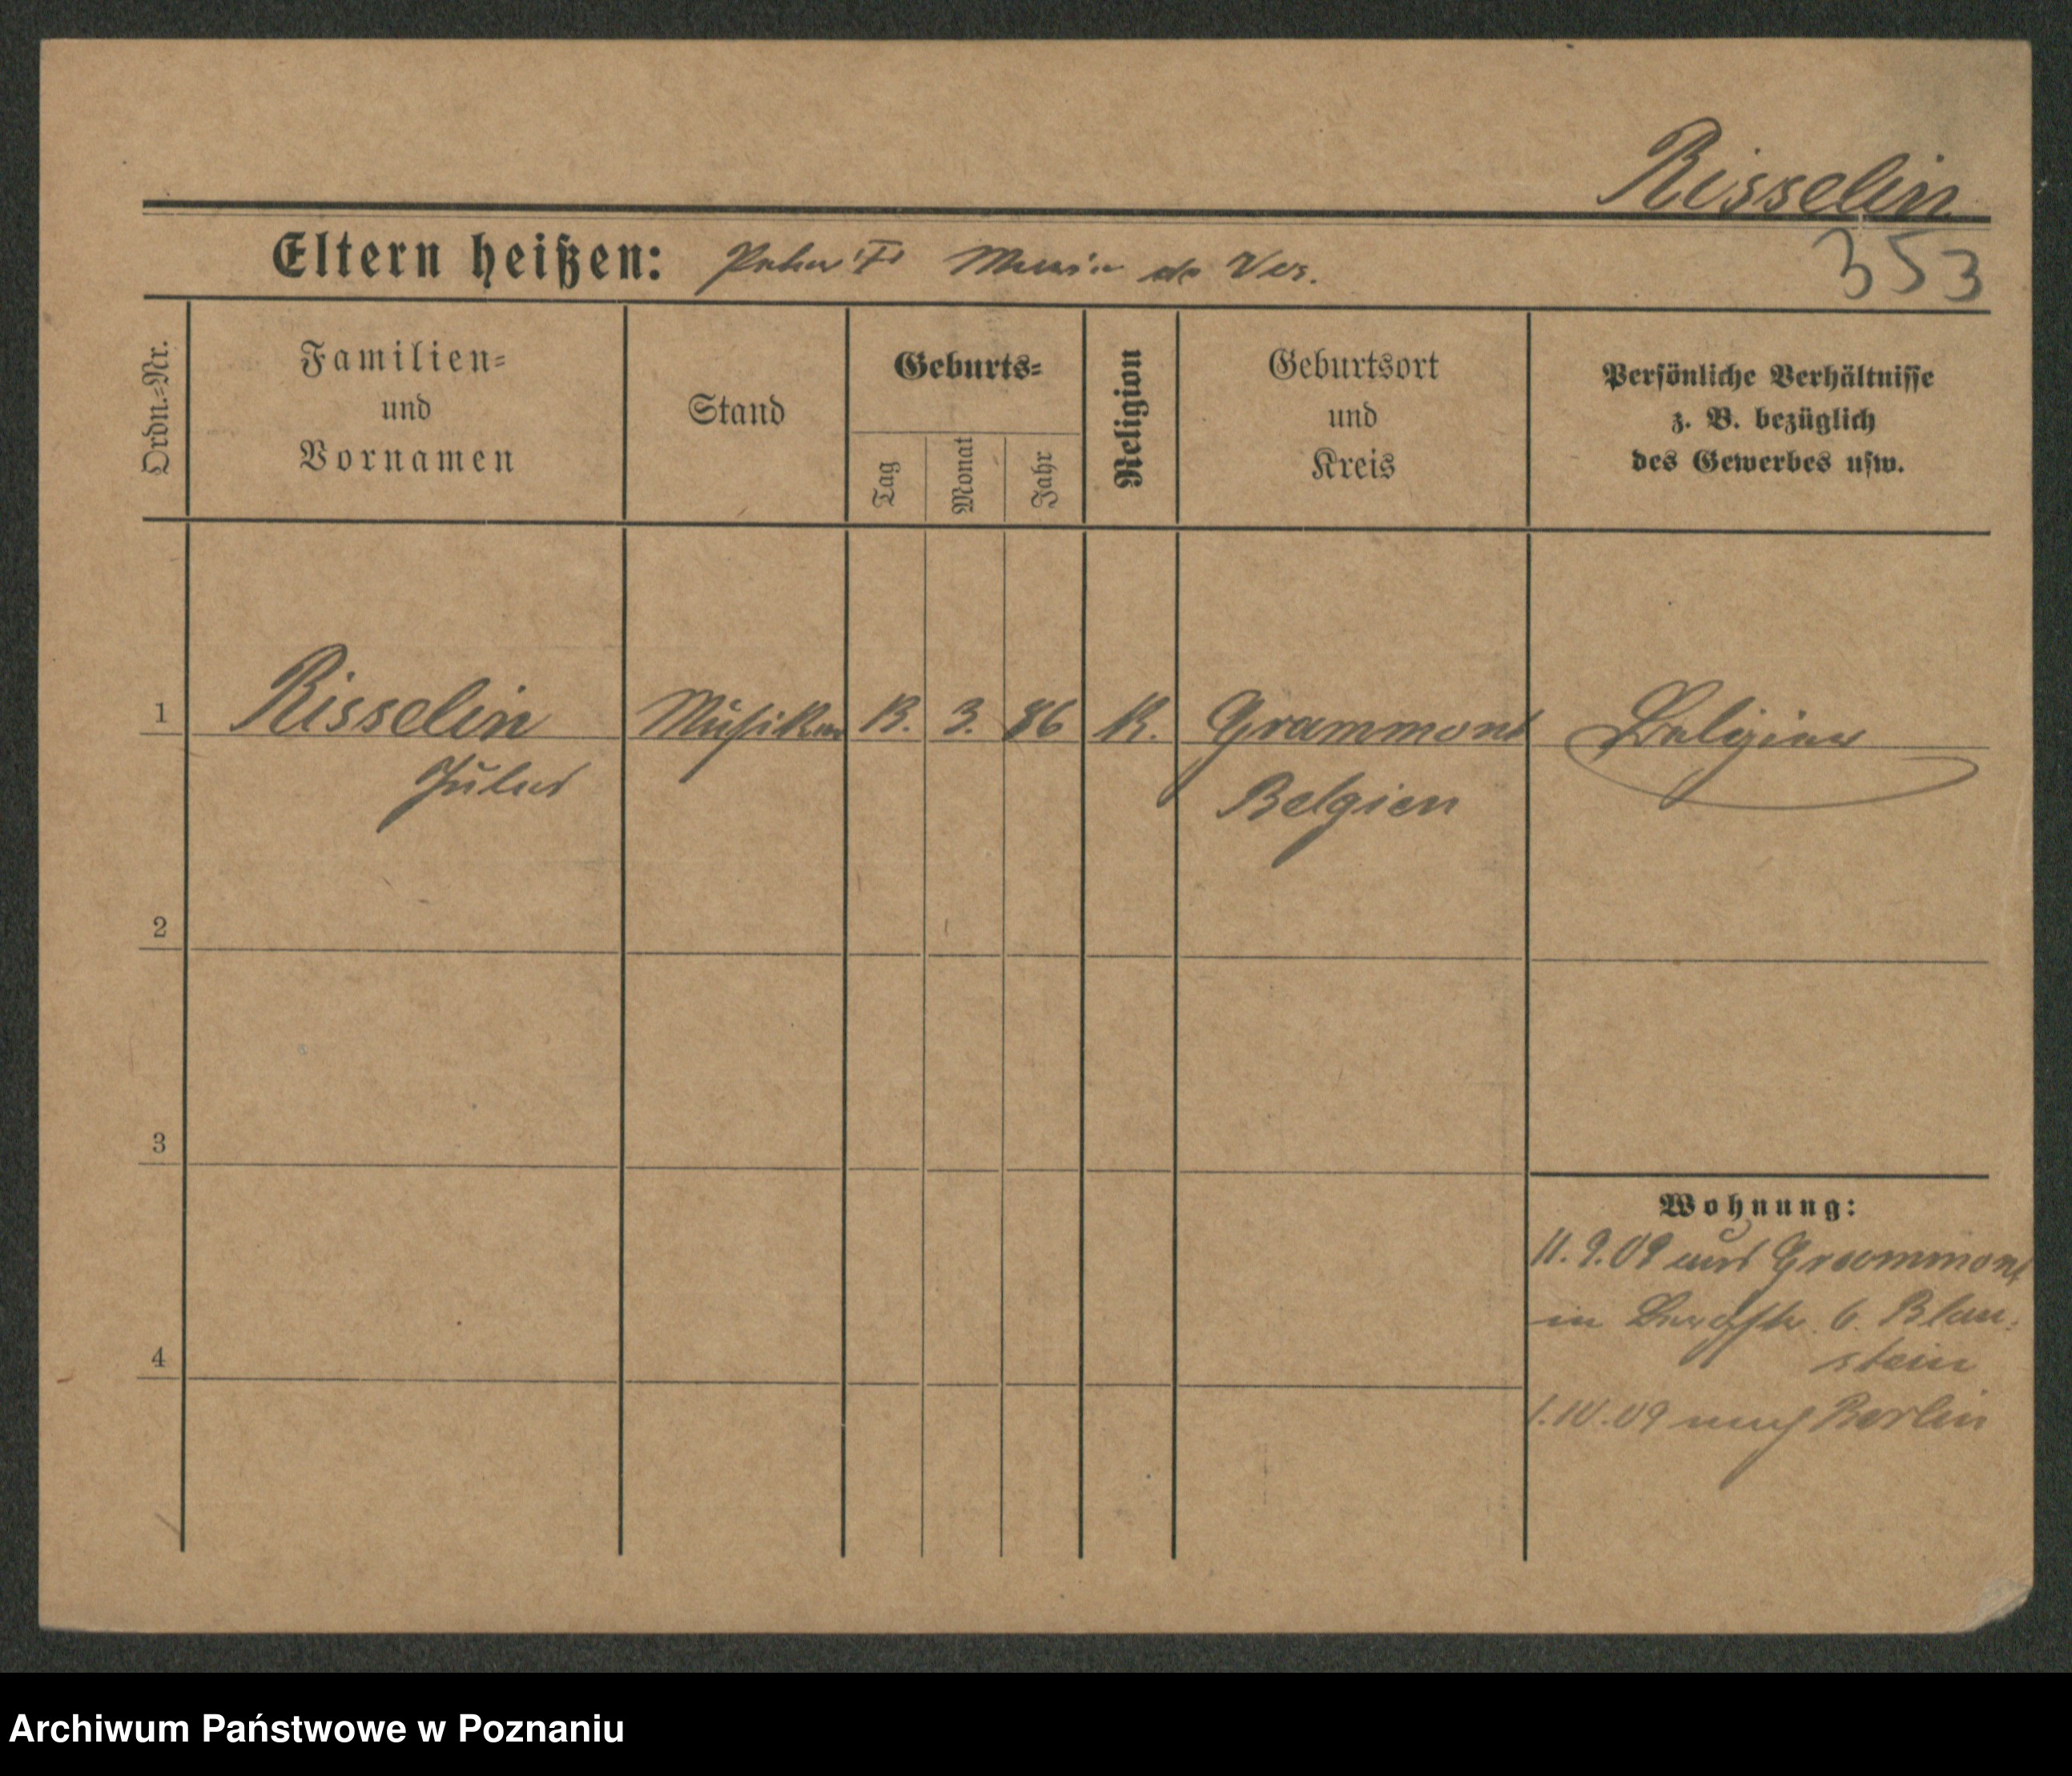 Risselin
Eltern heißen: Peter F Marie de Vos.
353
Ordn.-Nr.
Familien-
und
Vornamen
Stand
Geburts-
Tag
Monat
Jahr
Religion
Geburtsort
und
Kreis
Persönliche Verhältnisse
z. B. bezüglich
des Gewerbes usw.
1 Risselin Musiker 13. 3. 86 K. Grammont Belgier
Jules Belgien
2
3
Wohnung:
11.9.09 aus Grammont
in Bergstr. 6. Blau-
stein
4
1.10.09 nach Berlin
Archiwum Państwowe w Poznaniu